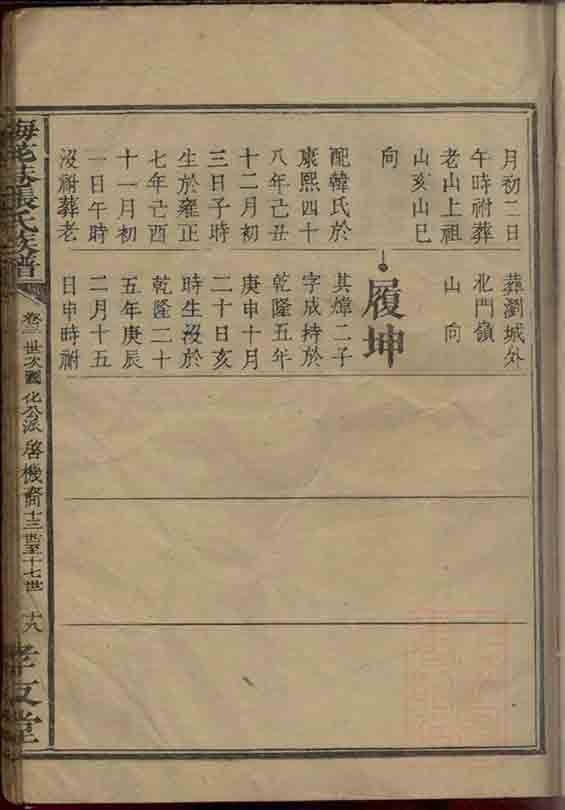 月初二日
午時祔葬
老山上祖
山亥山巳
向
配韓氏於
康熙四十
八年己丑
十二月初
三日子時
生於雍正
七年己酉
十一月初
一日午時
沒祔葬老
葬瀏城外
北門嶺
山向
履坤
其煒二子
字成持於
乾隆五年
庚申十月
二十日亥
時生沒於
乾隆二十
五年庚辰
二月十五
日申時祔
張氏族譜
卷三 世次圖 化公派 啓機裔 十三世至十七世
十八
孝友堂